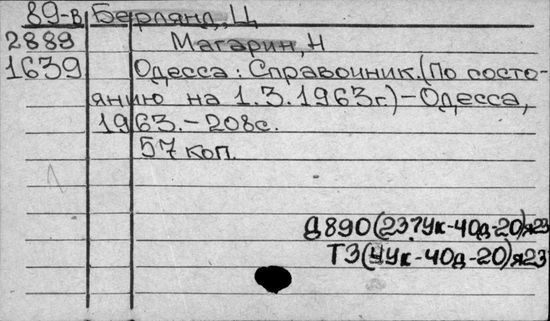 89-в Берлянд, Ц
2889 Магарин, Н
1639 Одесса: Справочник. (По состо-
янию на 1.3.1963г.)-Одесса,
1963.-208с.
57 коп.
Д890(237Ук-4Од-20)я23
Т3(4Ук-4Од-20)я23